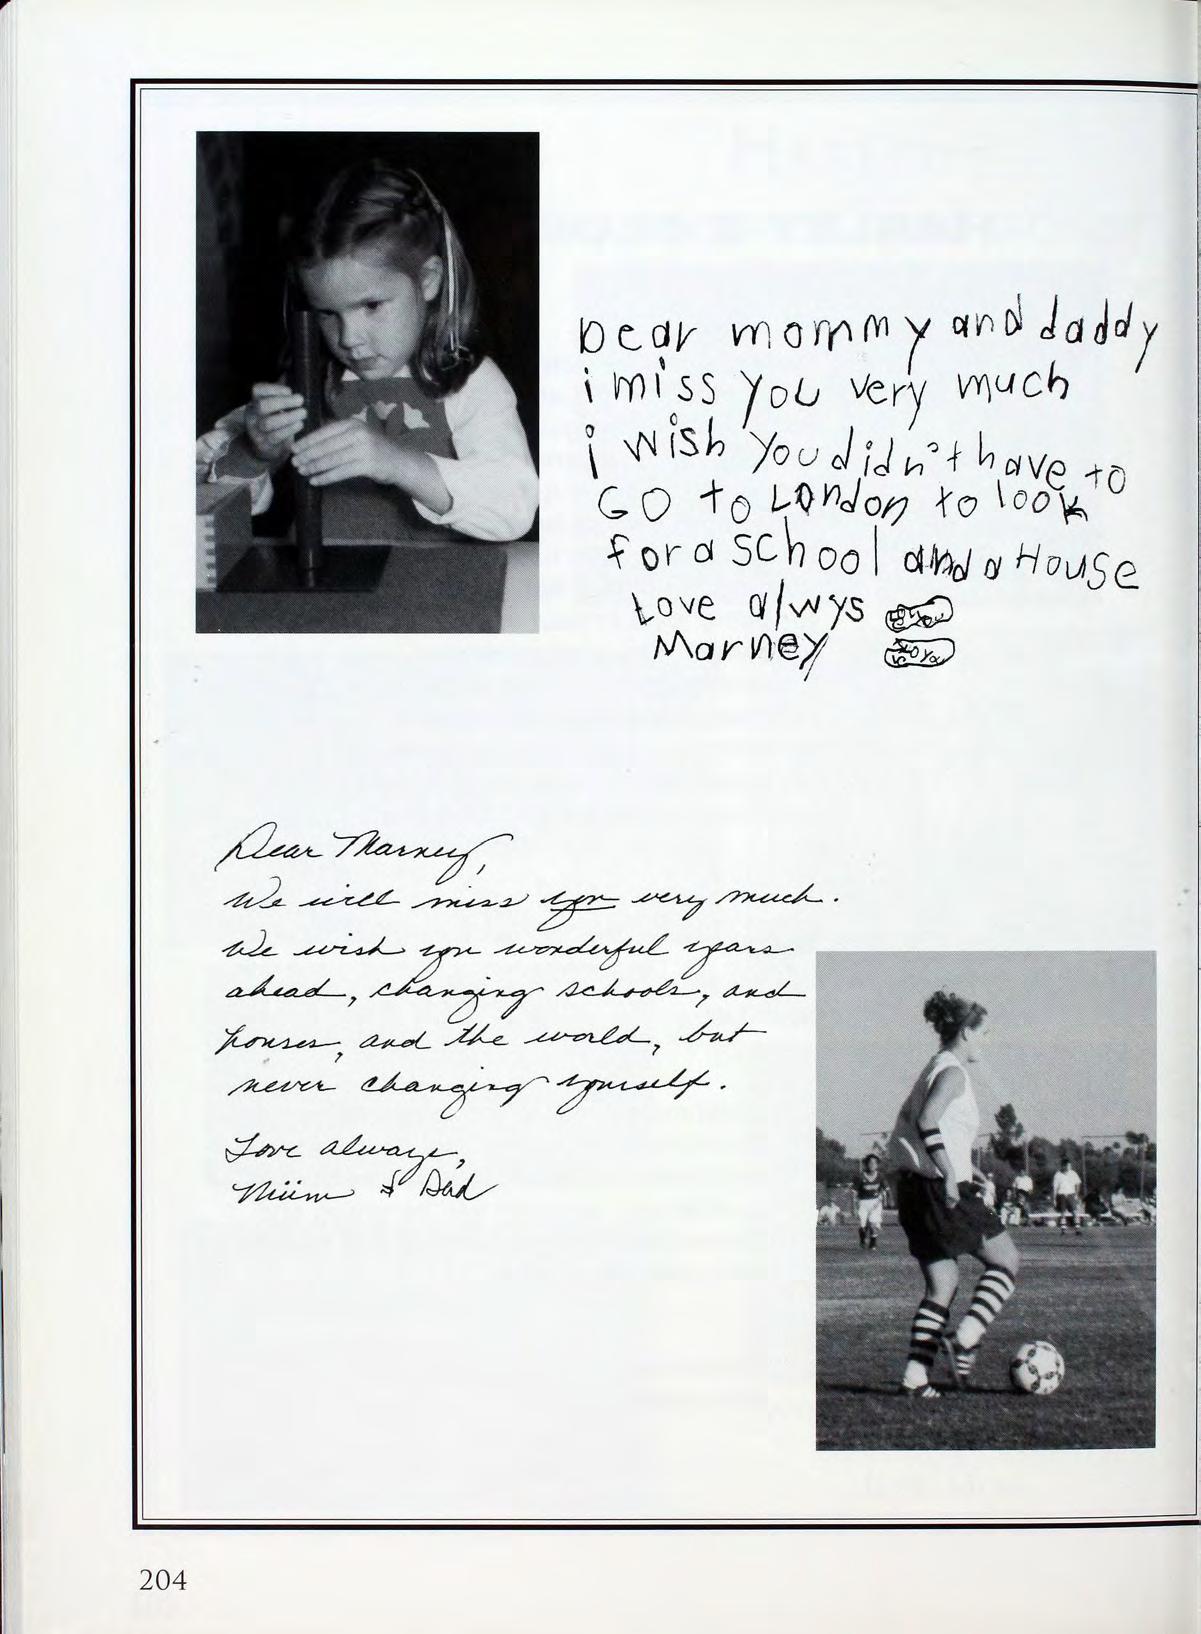 Dear mommy and daddy
i miss you very much
i wish you didn't have to
GO to London to look
for a school and a House
Love alwys
Marney
Dear Marney,
We will miss you very much.
We wish you wonderful years
ahead, changing schools, and
houses, and the world, but
never changing yourself.
Love always,
Mum & Dad
204